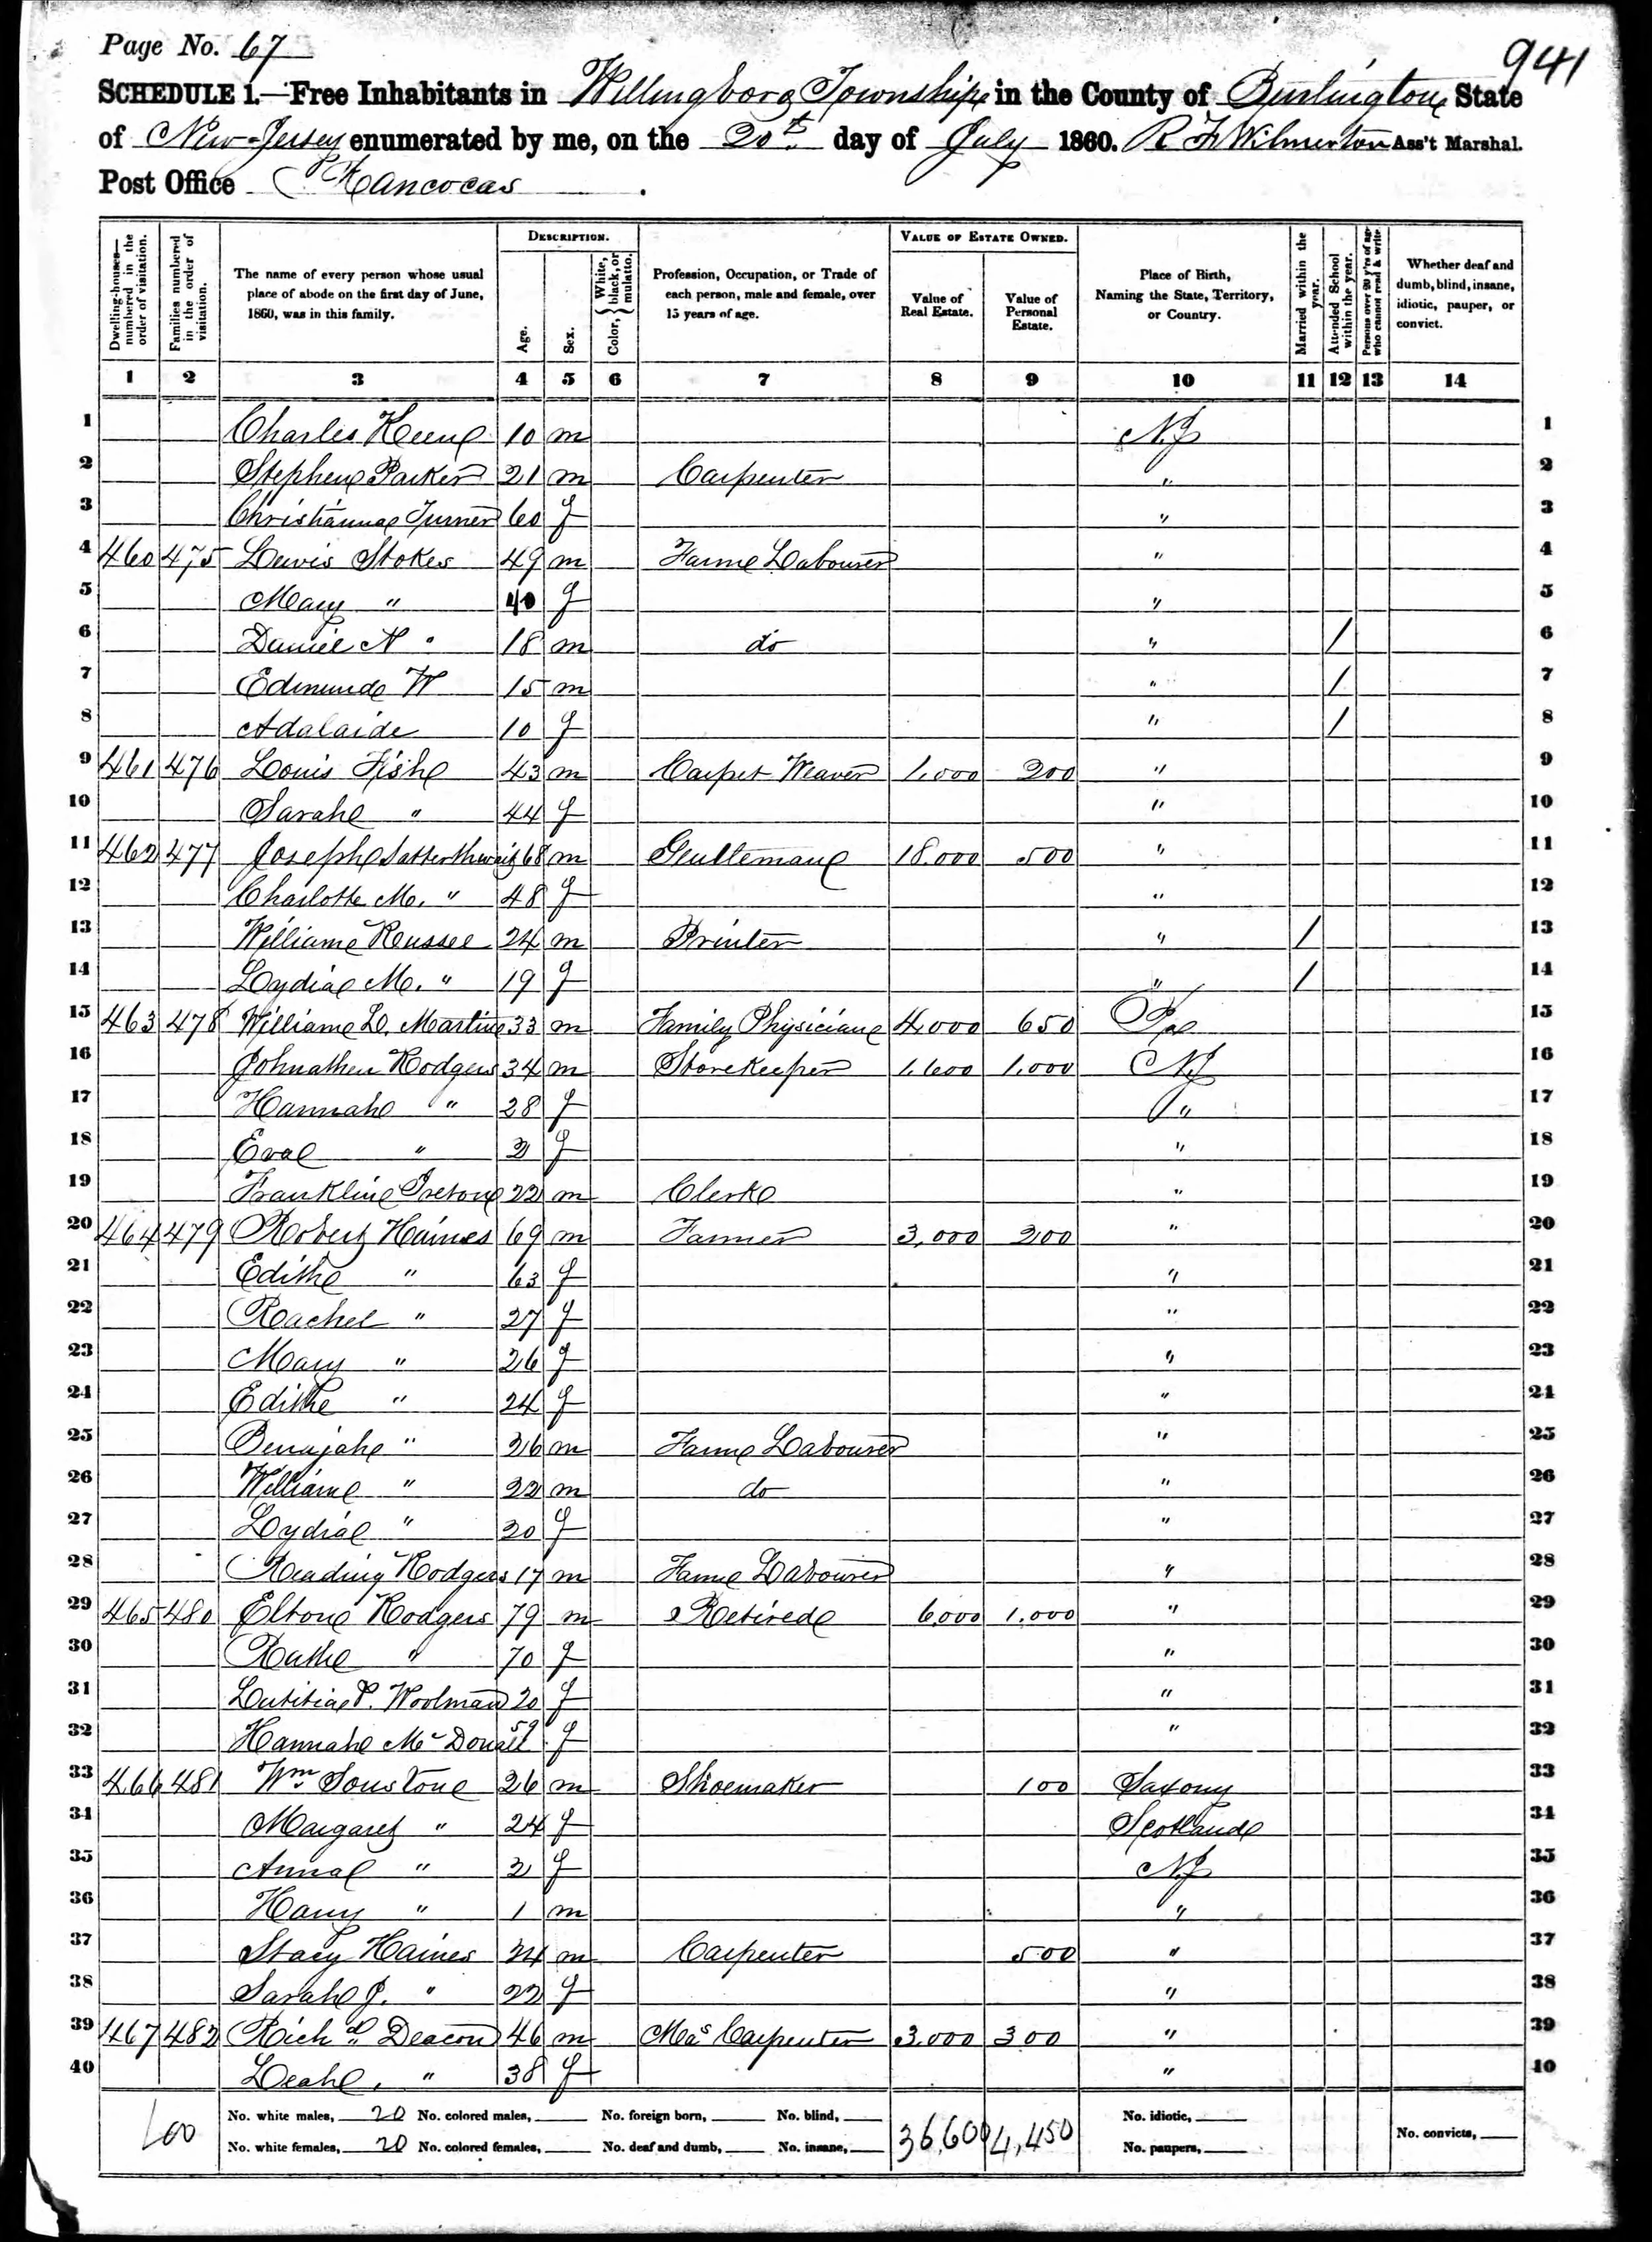 Page No. 67
941
SCHEDULE 1.—Free Inhabitants in Willingboro Township in the County of Burlington State
of New-Jersey enumerated by me, on the 20th day of July 1860. R F Wilmerton Ass't Marshal.
Post Office Rancocas
DESCRIPTION. VALUE OF ESTATE OWNED.
Dwelling-houses—numbered in the order of visitation.
Families numbered in the order of visitation.
The name of every person whose usual place of abode on the first day of June, 1860, was in this family.
Age.
Sex.
Color, { White, black, or mulatto.
Profession, Occupation, or Trade of each person, male and female, over 15 years of age.
Value of Real Estate.
Value of Personal Estate.
Place of Birth, Naming the State, Territory, or Country.
Married within the year.
Attended School within the year.
Persons over 20 y'rs of age who cannot read & write
Whether deaf and dumb, blind, insane, idiotic, pauper, or convict.
1 2 3 4 5 6 7 8 9 10 11 12 13 14
1 Charles 10 m N.J 1
2 Stephen Parker 21 m Carpenter " 2
3 Christianna Turner 60 f " 3
4 460 475 Lewis Stokes 49 m Farm Labourer " 4
5 Mary " 40 f " 5
6 Daniel N " 18 m do " / 6
7 Edmund W 15 m " / 7
8 Adalaide 10 f " / 8
9 461 476 Louis Fish 43 m Carpet Weaver 1,000 200 " 9
10 Sarah " 44 f " 10
11 462 477 Joseph Satterthwait 68 m Gentleman 18.000 500 " 11
12 Charlotte M. " 48 f " 12
13 William Russel 24 m Printer " / 13
14 Lydia M. " 19 f " / 14
15 463 478 William L. Martin 33 m Family Physician 4,000 650 Pa 15
16 Johnathen Rodgers 34 m Storekeeper 1,600 1,000 N.J 16
17 Hannah " 28 f " 17
18 Eva " 2 f " 18
19 Franklin 22 m Clerk " 19
20 464 479 Robert Haines 69 m Farmer 3,000 200 " 20
21 Edith " 63 f " 21
22 Rachel " 27 f " 22
23 Mary " 26 f " 23
24 Edith " 24 f " 24
25 Benajah " 26 m Farm Labourer " 25
26 William " 22 m do " 26
27 Lydia " 20 f " 27
28 Reading Rodgers 17 m Farm Labourer " 28
29 465 480 Elton Rodgers 79 m Retired 6,000 1,000 " 29
30 Ruth " 70 f " 30
31 Lutitia P. Woolman 20 f " 31
32 Hannah McDonall 59 f " 32
33 466 481 Wm 26 m Shoemaker 100 Saxony 33
34 Margaret " 24 f Scotland 34
35 Anna " 2 f N.J 35
36 Harry " 1 m " 36
37 Stacy Haines 24 m Carpenter 500 " 37
38 Sarah J. " 22 f " 38
39 467 482 Richd Deacon 46 m Mas Carpenter 3.000 300 " 39
40 Leah " 38 f " 40
No. white males, 20 No. colored males, No. foreign born, No. blind, 36,600 4,450 No. idiotic,
No. white females, 20 No. colored females, No. deaf and dumb, No. insane, No. paupers, No. convicts,